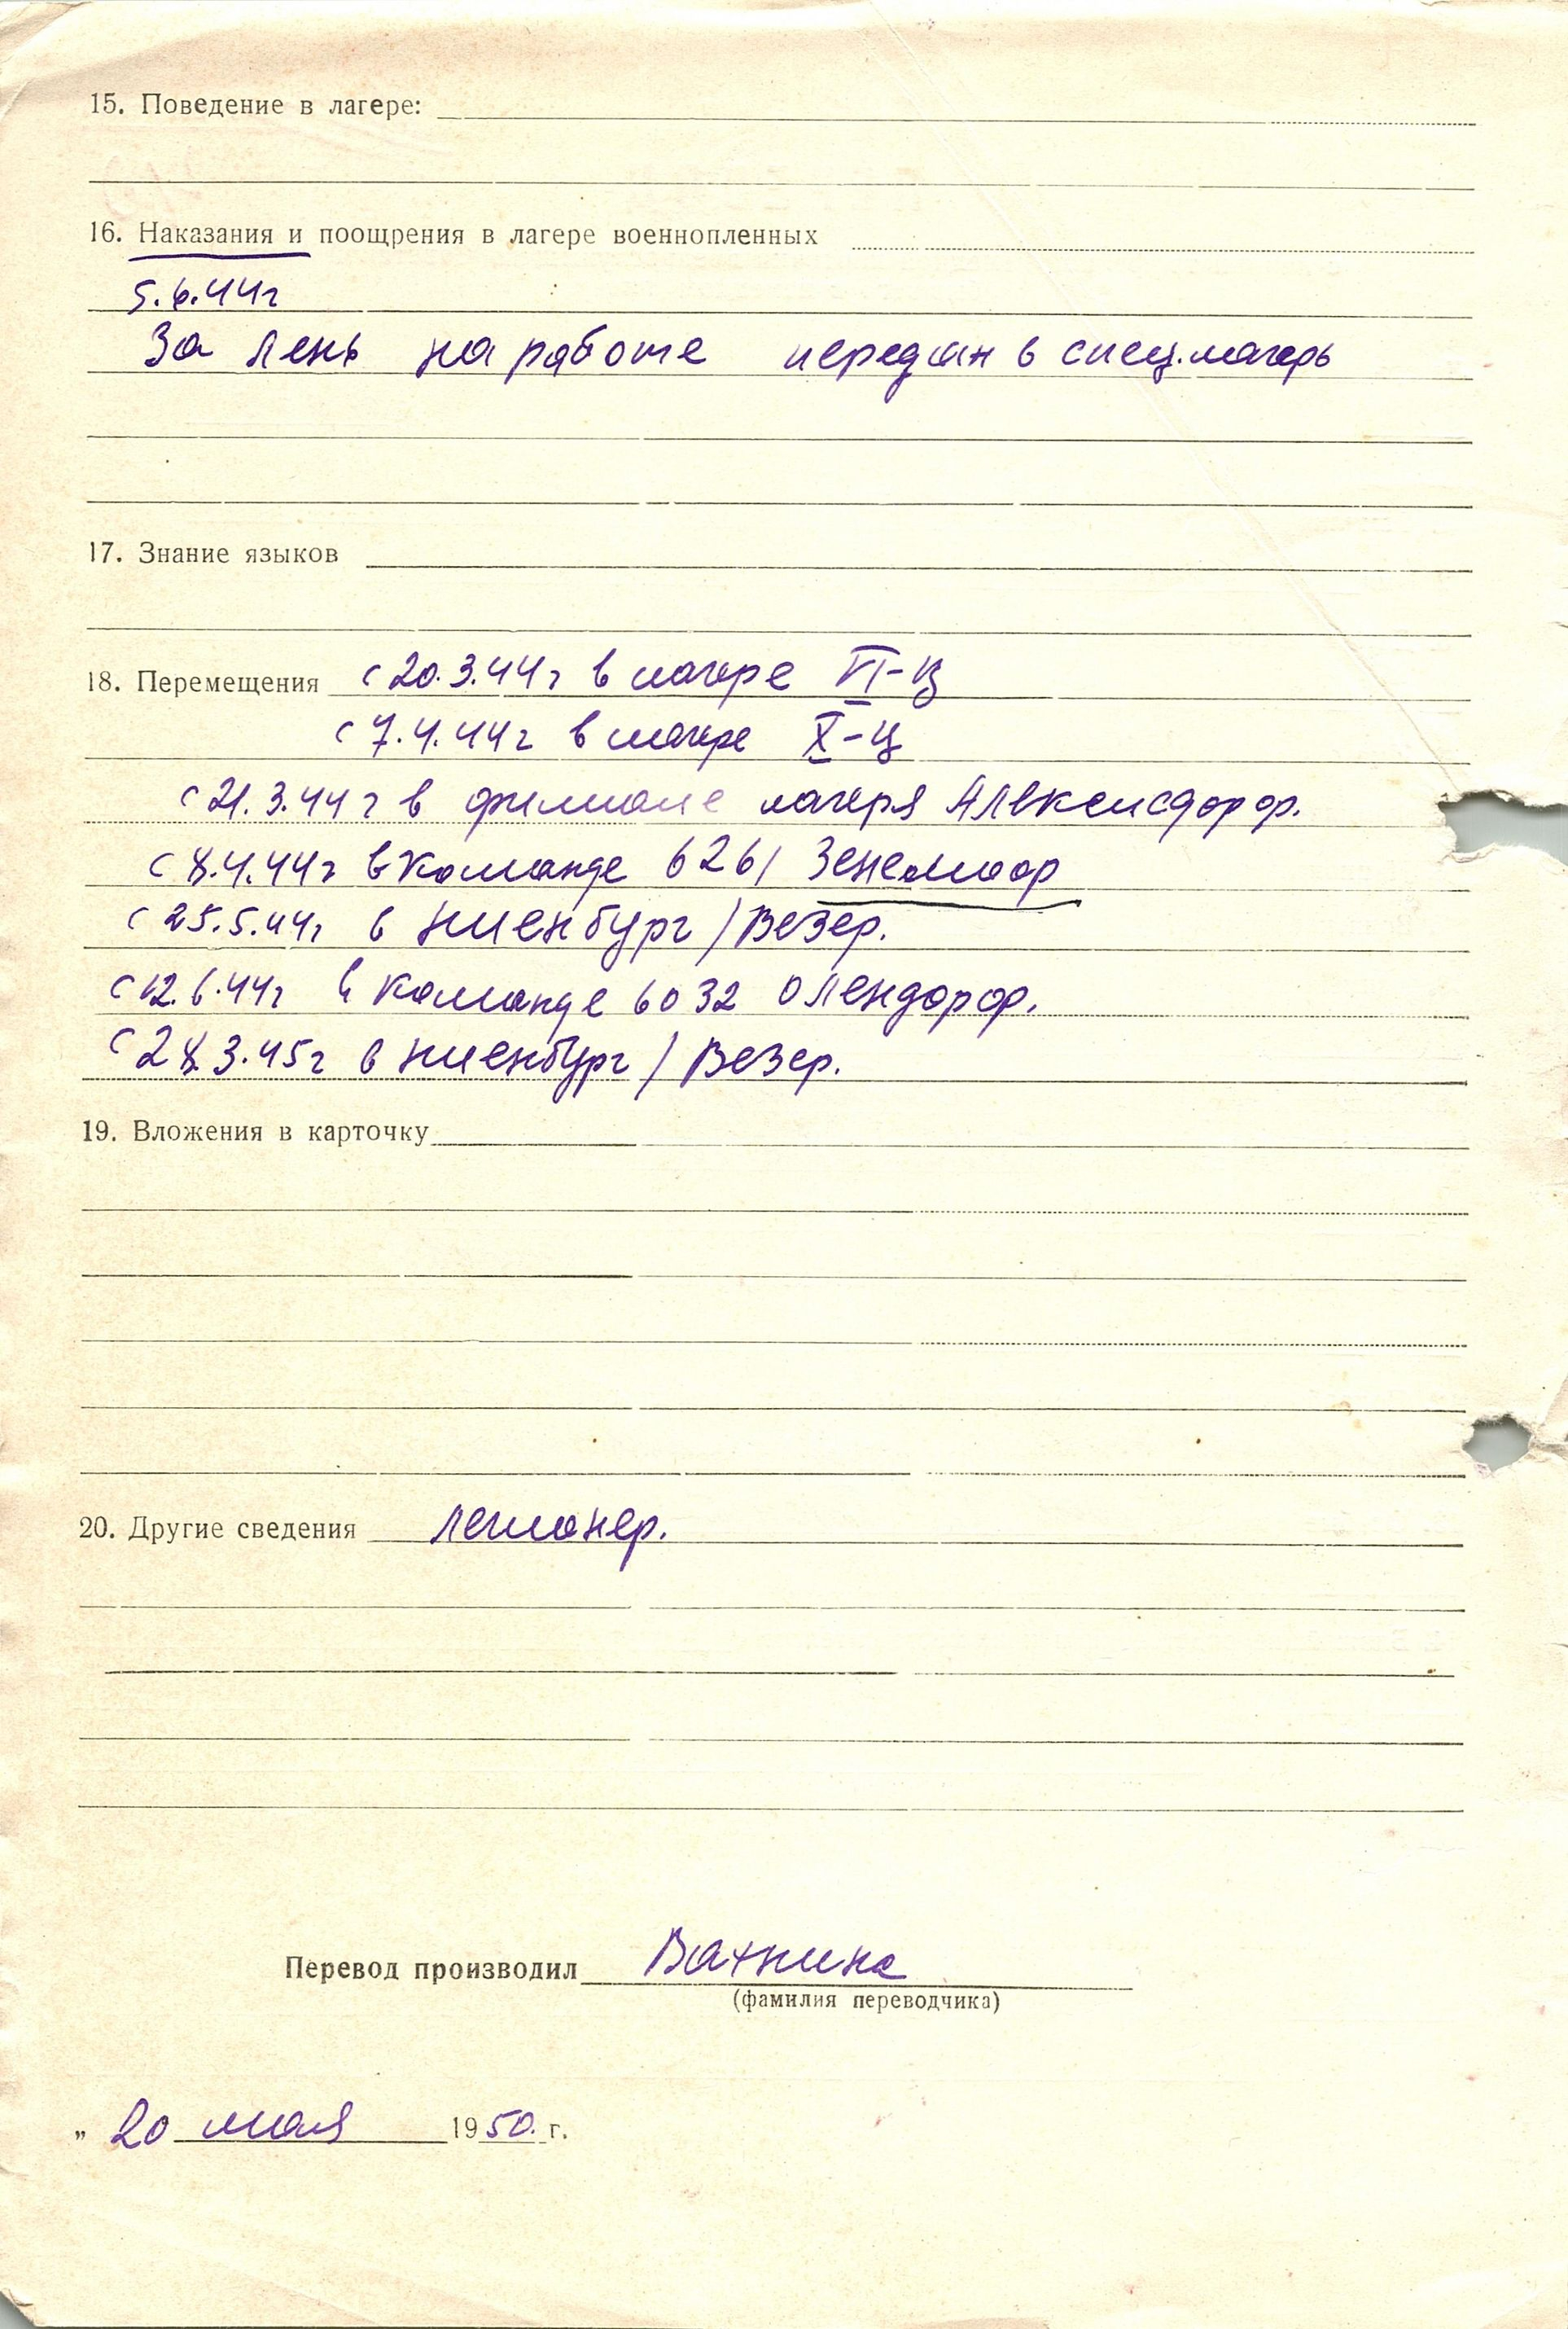 15. Поведение в лагере:
16. Наказания и поощрения в лагере военнопленных
5.6.44г
За лень на работе передан в спец.лагерь
17. Знание языков
18. Перемещения с 20.3.44г в лагере VI-Ц
с 7.4.44г в лагере X-Ц
с 21.3.44г в филиале лагеря Алексисдорф.
с 8.4.44г в команде 6261 Зенемоор
с 25.5.44г в Ниенбург/Везер.
с 12.6.44г в команде 6032 Олендорф.
с 28.3.45г в Ниенбург/Везер.
19. Вложения в карточку
20. Другие сведения легионер.
Перевод производил
(фамилия переводчика)
„ 20 мая 1950. г.